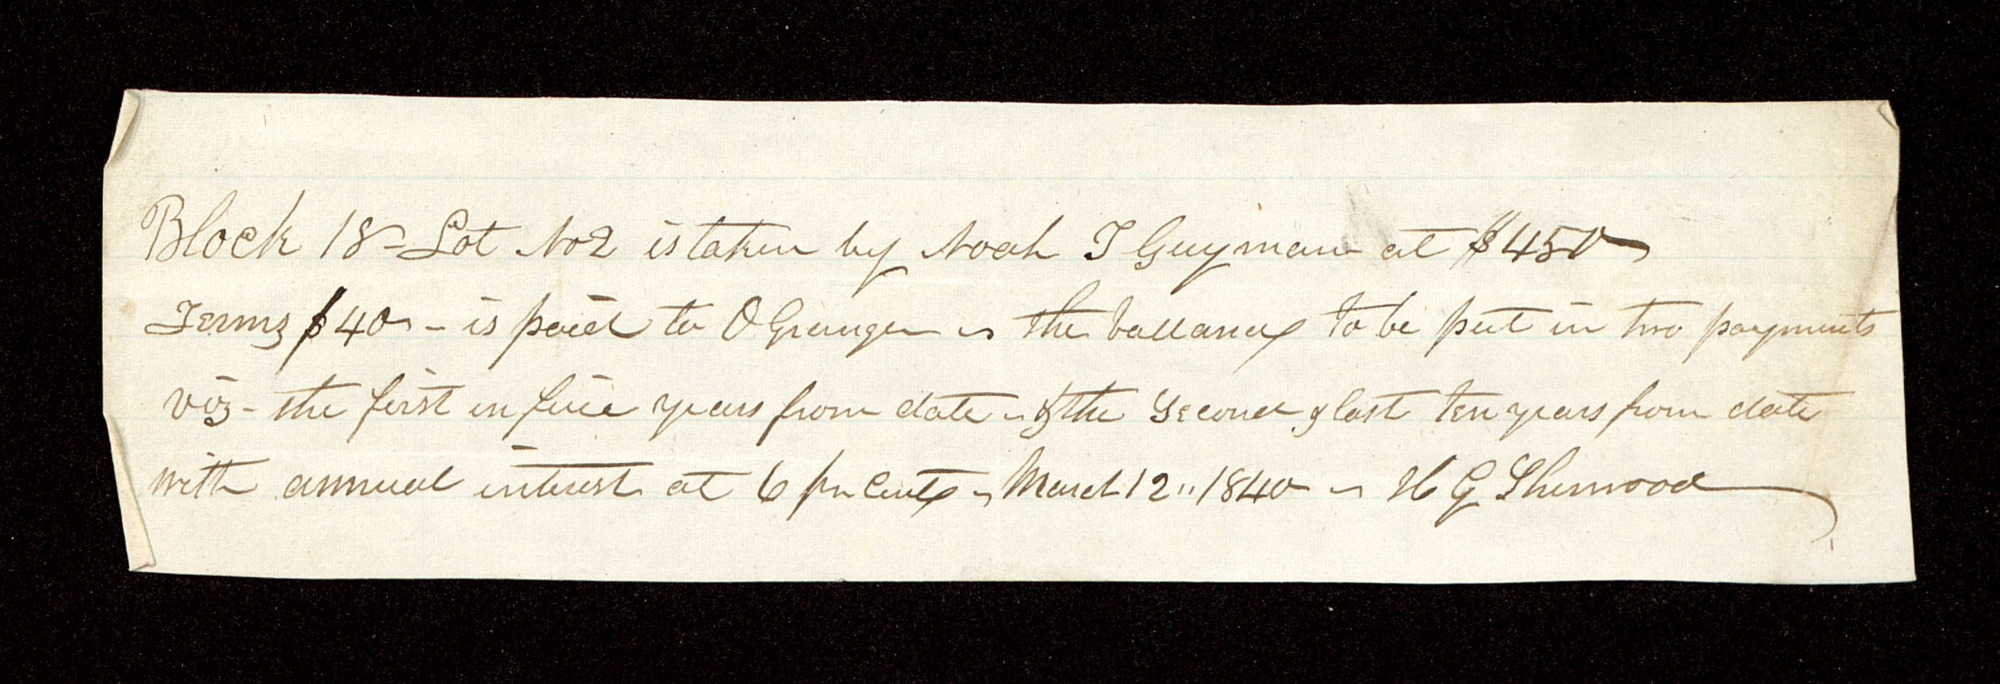 Block 18 – Lot No 2 is taken by Noah T Guyman at $450
Terms $40 – is paid to O Granger – the ballance to be put in two payments
viz – the first in five years from date – & the second & last ten years from date
with annual intrest at 6 pr Cent – March 12" 1840 – H G Sherwood